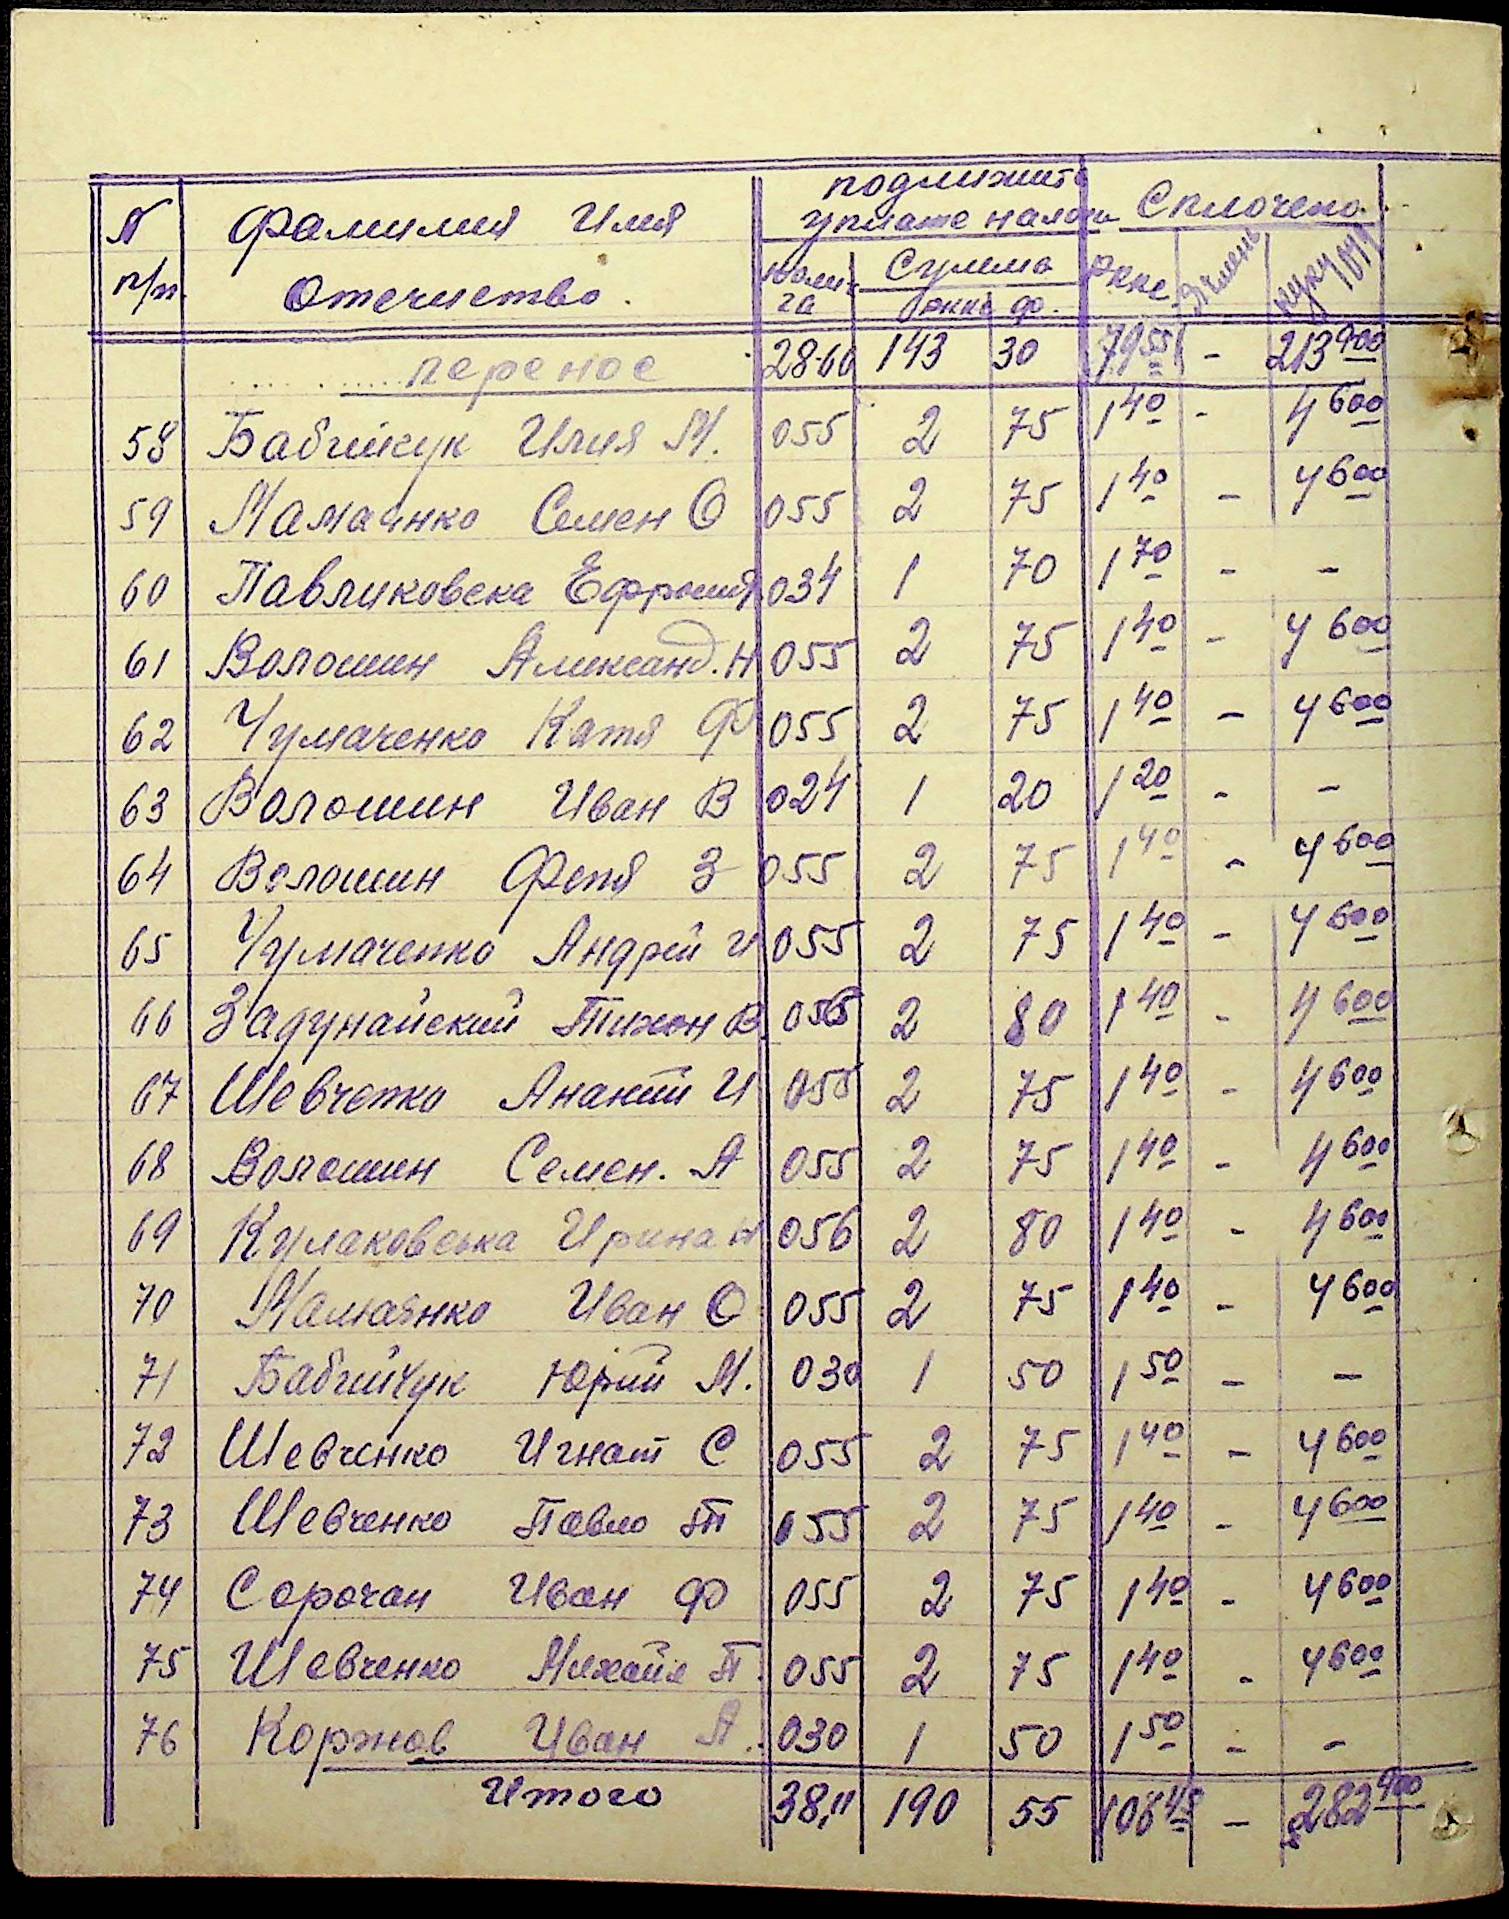 N Фамилия Имя подлижит Сплочено
п/п. Отечиство. уплате налога
Сумма ркке. Ячмень
га ркке ф.
перенос 28-60 143 30 79 55 - 213 900
58 Бабгийчук Илия М. 055 2 75 1 40 - 4 600
59 Мамаянко Семен О 055 2 75 1 40 - 4 600
60 Павликовска Ефросия 034 1 70 1 70 - -
61 Волошин Александ. Н 055 2 75 1 40 - 4 600
62 Чумаченко Катя Ф 055 2 75 1 40 - 4 600
63 Волошин Иван В 024 1 20 1 20 - -
64 Волошин Фетя З 055 2 75 1 40 - 4 600
65 Чумаченко Андрей И 055 2 75 1 40 - 4 600
66 Задунайский Тихон В. 056 2 80 1 40 - 4 600
67 Шевченко Ананий И 055 2 75 1 40 - 4 600
68 Волошин Семен. А 055 2 75 1 40 - 4 600
69 Кулаковська Ирина Н 056 2 80 1 40 - 4 600
70 Мамаянко Иван О 055 2 75 1 40 - 4 600
71 Бабгийчук Юрий М. 030 1 50 1 50 - -
72 Шевченко Игнат С 055 2 75 1 40 - 4 600
73 Шевченко Павло Т 055 2 75 1 40 - 4 600
74 Сорочан Иван Ф 055 2 75 1 40 - 4 600
75 Шевченко Михайл Т. 055 2 75 1 40 - 4 600
76 Коржов Иван А. 030 1 50 1 50 - -
Итого 38,11 190 55 108 45 - 282 900